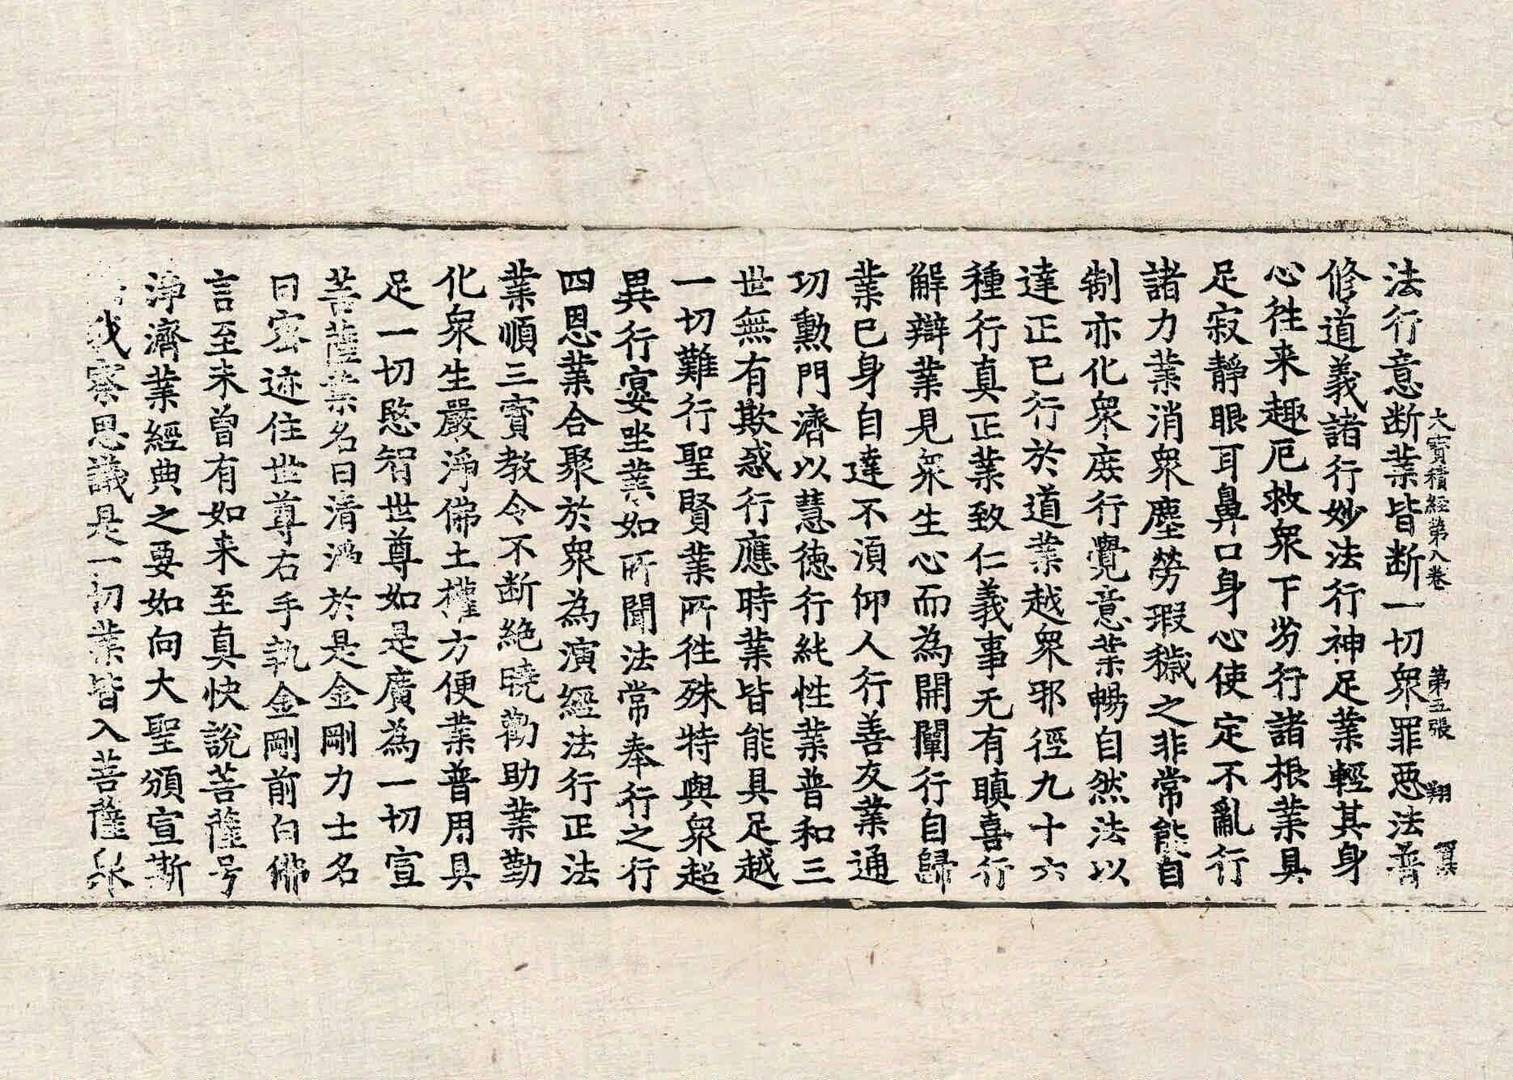 法行意断業皆断一切衆罪惡法普
大寳積經第八卷 第五張 翔
修道義諸行妙法行神足業輕其身
心徃来趣厄救衆下劣行諸根業具
足寂靜眼耳鼻口身心使定不亂行
諸力業消衆塵勞瑕穢之非常能自
制亦化衆庶行覺意業暢自然法以
達正已行於道業越衆邪徑九十六
種行真正業致仁義事无有瞋喜行
解辯業見衆生心而為開闡行自歸
業已身自達不湏仰人行善友業通
功勲門濟以慧德行純性業普和三
世無有欺惑行應時業皆能具足越
一切難行聖賢業所徃殊特與衆超
異行宴坐業如所聞法常奉行之行
四恩業合聚於衆為演經法行正法
業順三寳教令不断絶曉勸助業勤
化衆生嚴淨佛土權方便業普用具
足一切愍智世尊如是廣為一切宣
菩薩業名曰清淨於是金剛力士名
曰密迹住世尊右手執金剛前白佛
言至未曾有如来至真快說菩薩号
淨濟業經典之要如向大聖頒宣斯
我察思議是一切業皆入菩薩